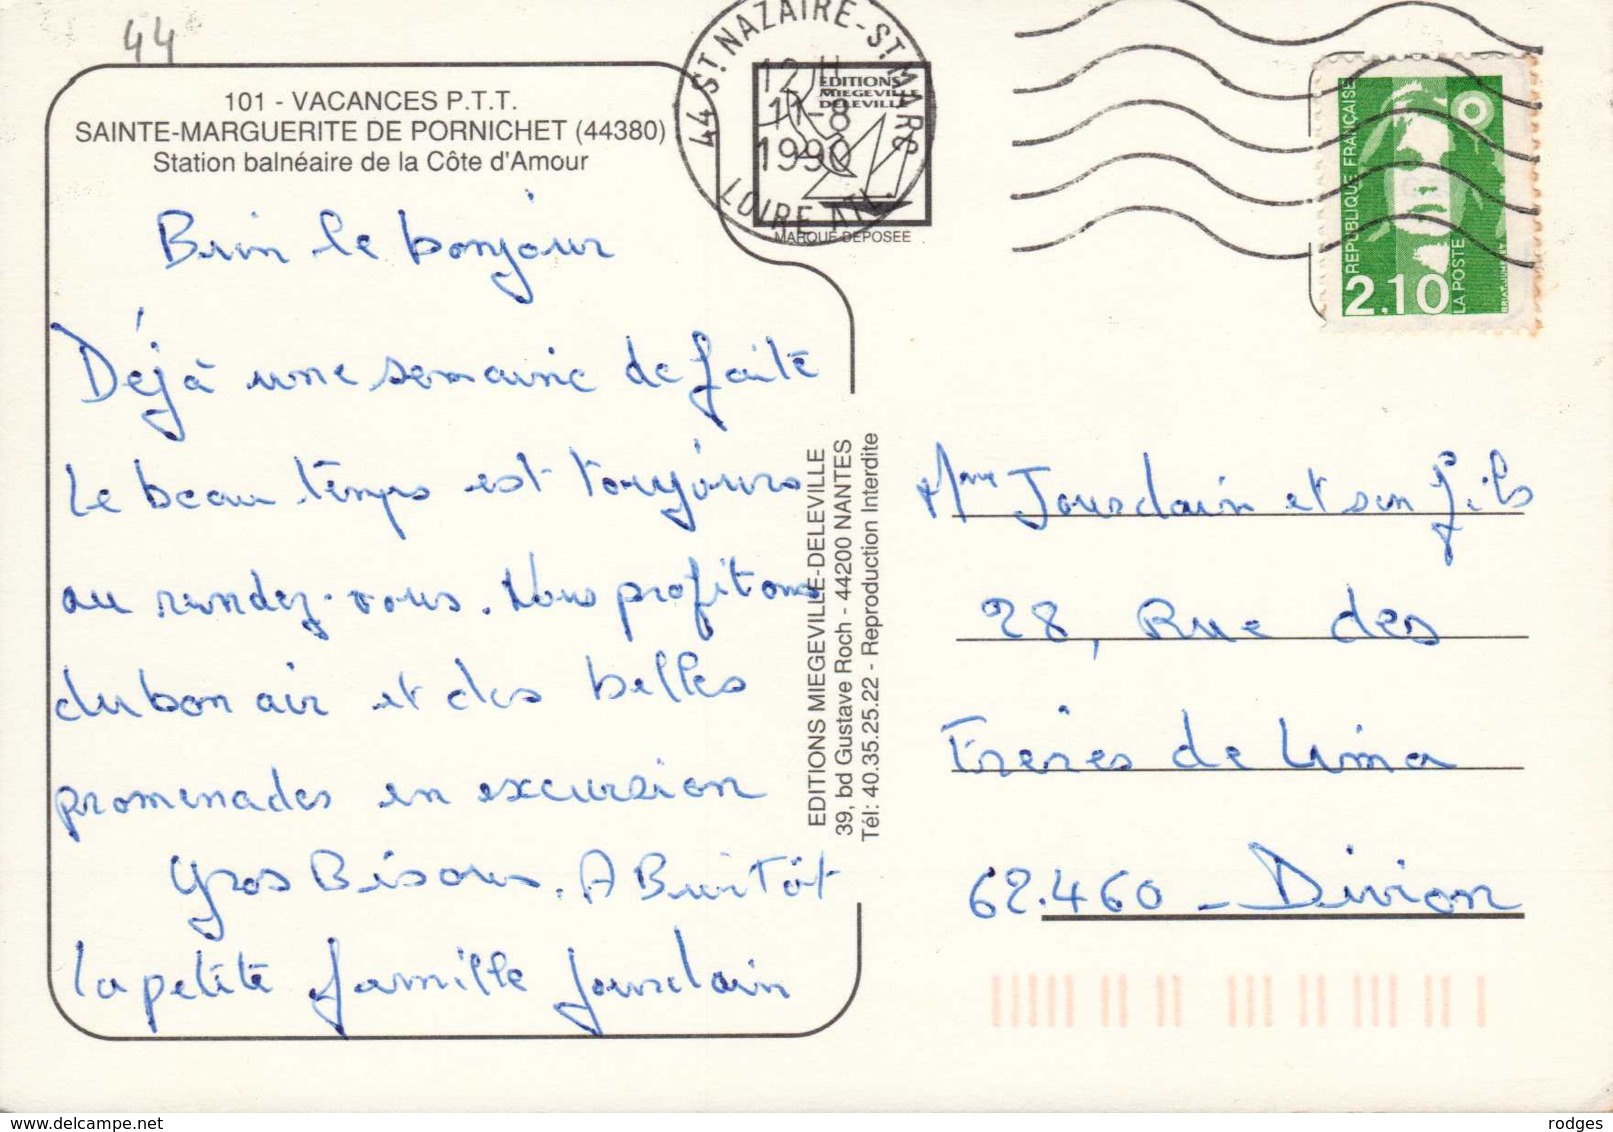 44
101 - VACANCES P.T.T.
SAINTE-MARGUERITE DE PORNICHET (44380)
Station balnéaire de la Côte d'Amour
Bien le bonjour
Déjà une semaine de faite
Le beau temps est toujours
au rendez-vous. Nous profitons
du bon air et des belles
promenades en excursion
Gros Bisous. A Bientôt
la petite famille Jourdain
44 ST NAZAIRE-ST MARC
12 H
11-8
1990
LOIRE ATL.
EDITIONS
MIEGEVILLE
DELEVILLE
MARQUE DEPOSEE
EDITIONS MIEGEVILLE-DELEVILLE
39, bd Gustave Roch - 44200 NANTES
Tél: 40.35.25.22 - Reproduction Interdite
REPUBLIQUE FRANÇAISE
2.10
LA POSTE
BRIAT-JUMELET
Mme Jourdain et son fils
28, Rue des
Frères de Lima
62.460 - Divion
rodges